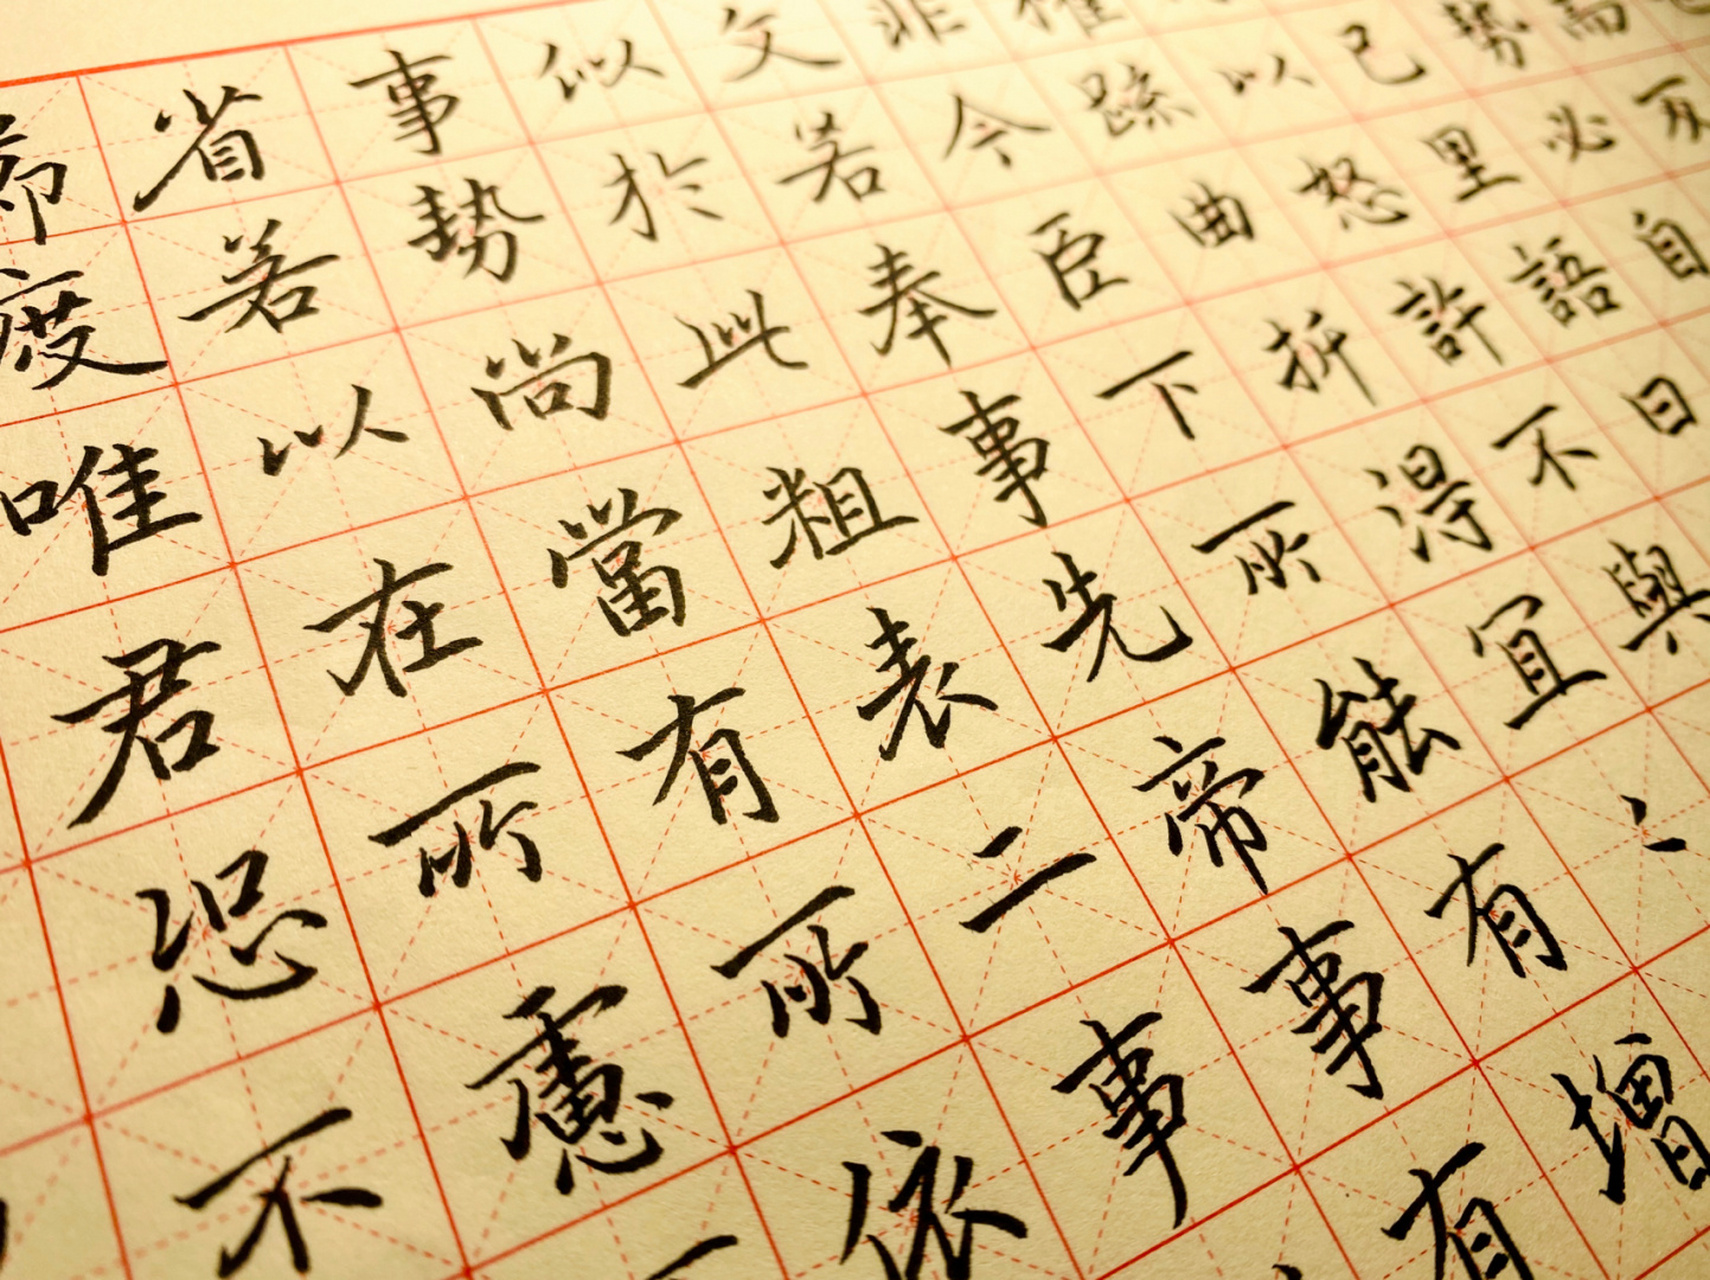 不
勢必自
已里語曰
以怒許不與
踈曲折得宜
非今臣下所能有增
文若奉事先帝事有
似於此粗表二事
事勢尚當有所依
省若以在所慮
度唯君恐不